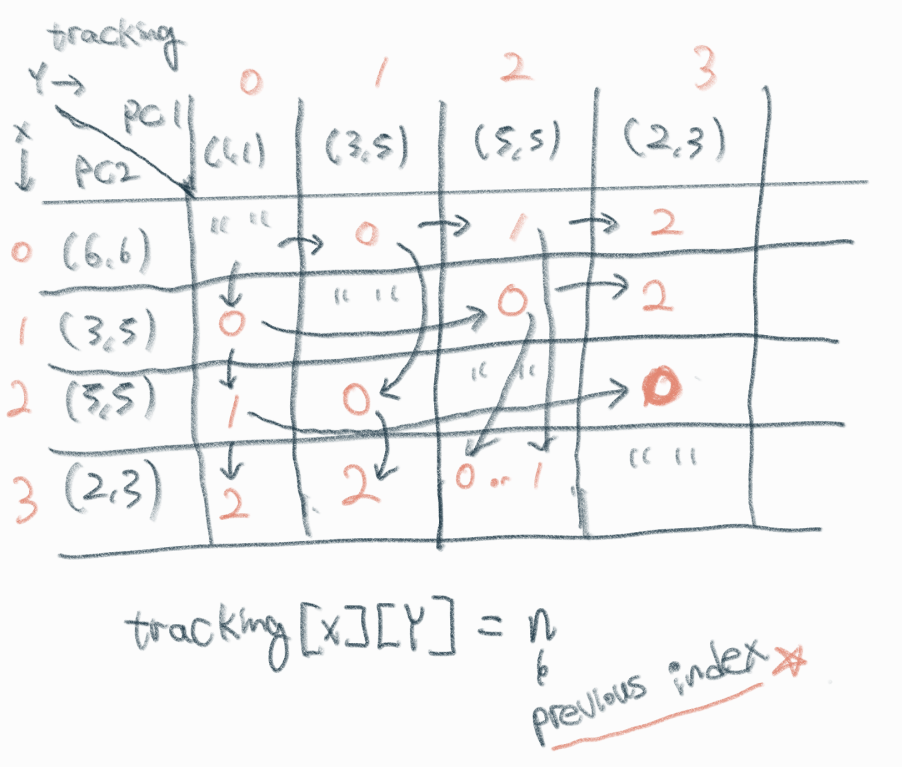 tracking
Y → 0 1 2 3
PC1
X ↓ PC2 (1,1) (3,5) (5,5) (2,3)
0 (6,6) " " 0 1 2
1 (3,5) 0 " " 0 2
2 (5,5) 1 0 " " 0
3 (2,3) 2 2 0 .. 1 " "
tracking[x][Y] = n
previous index